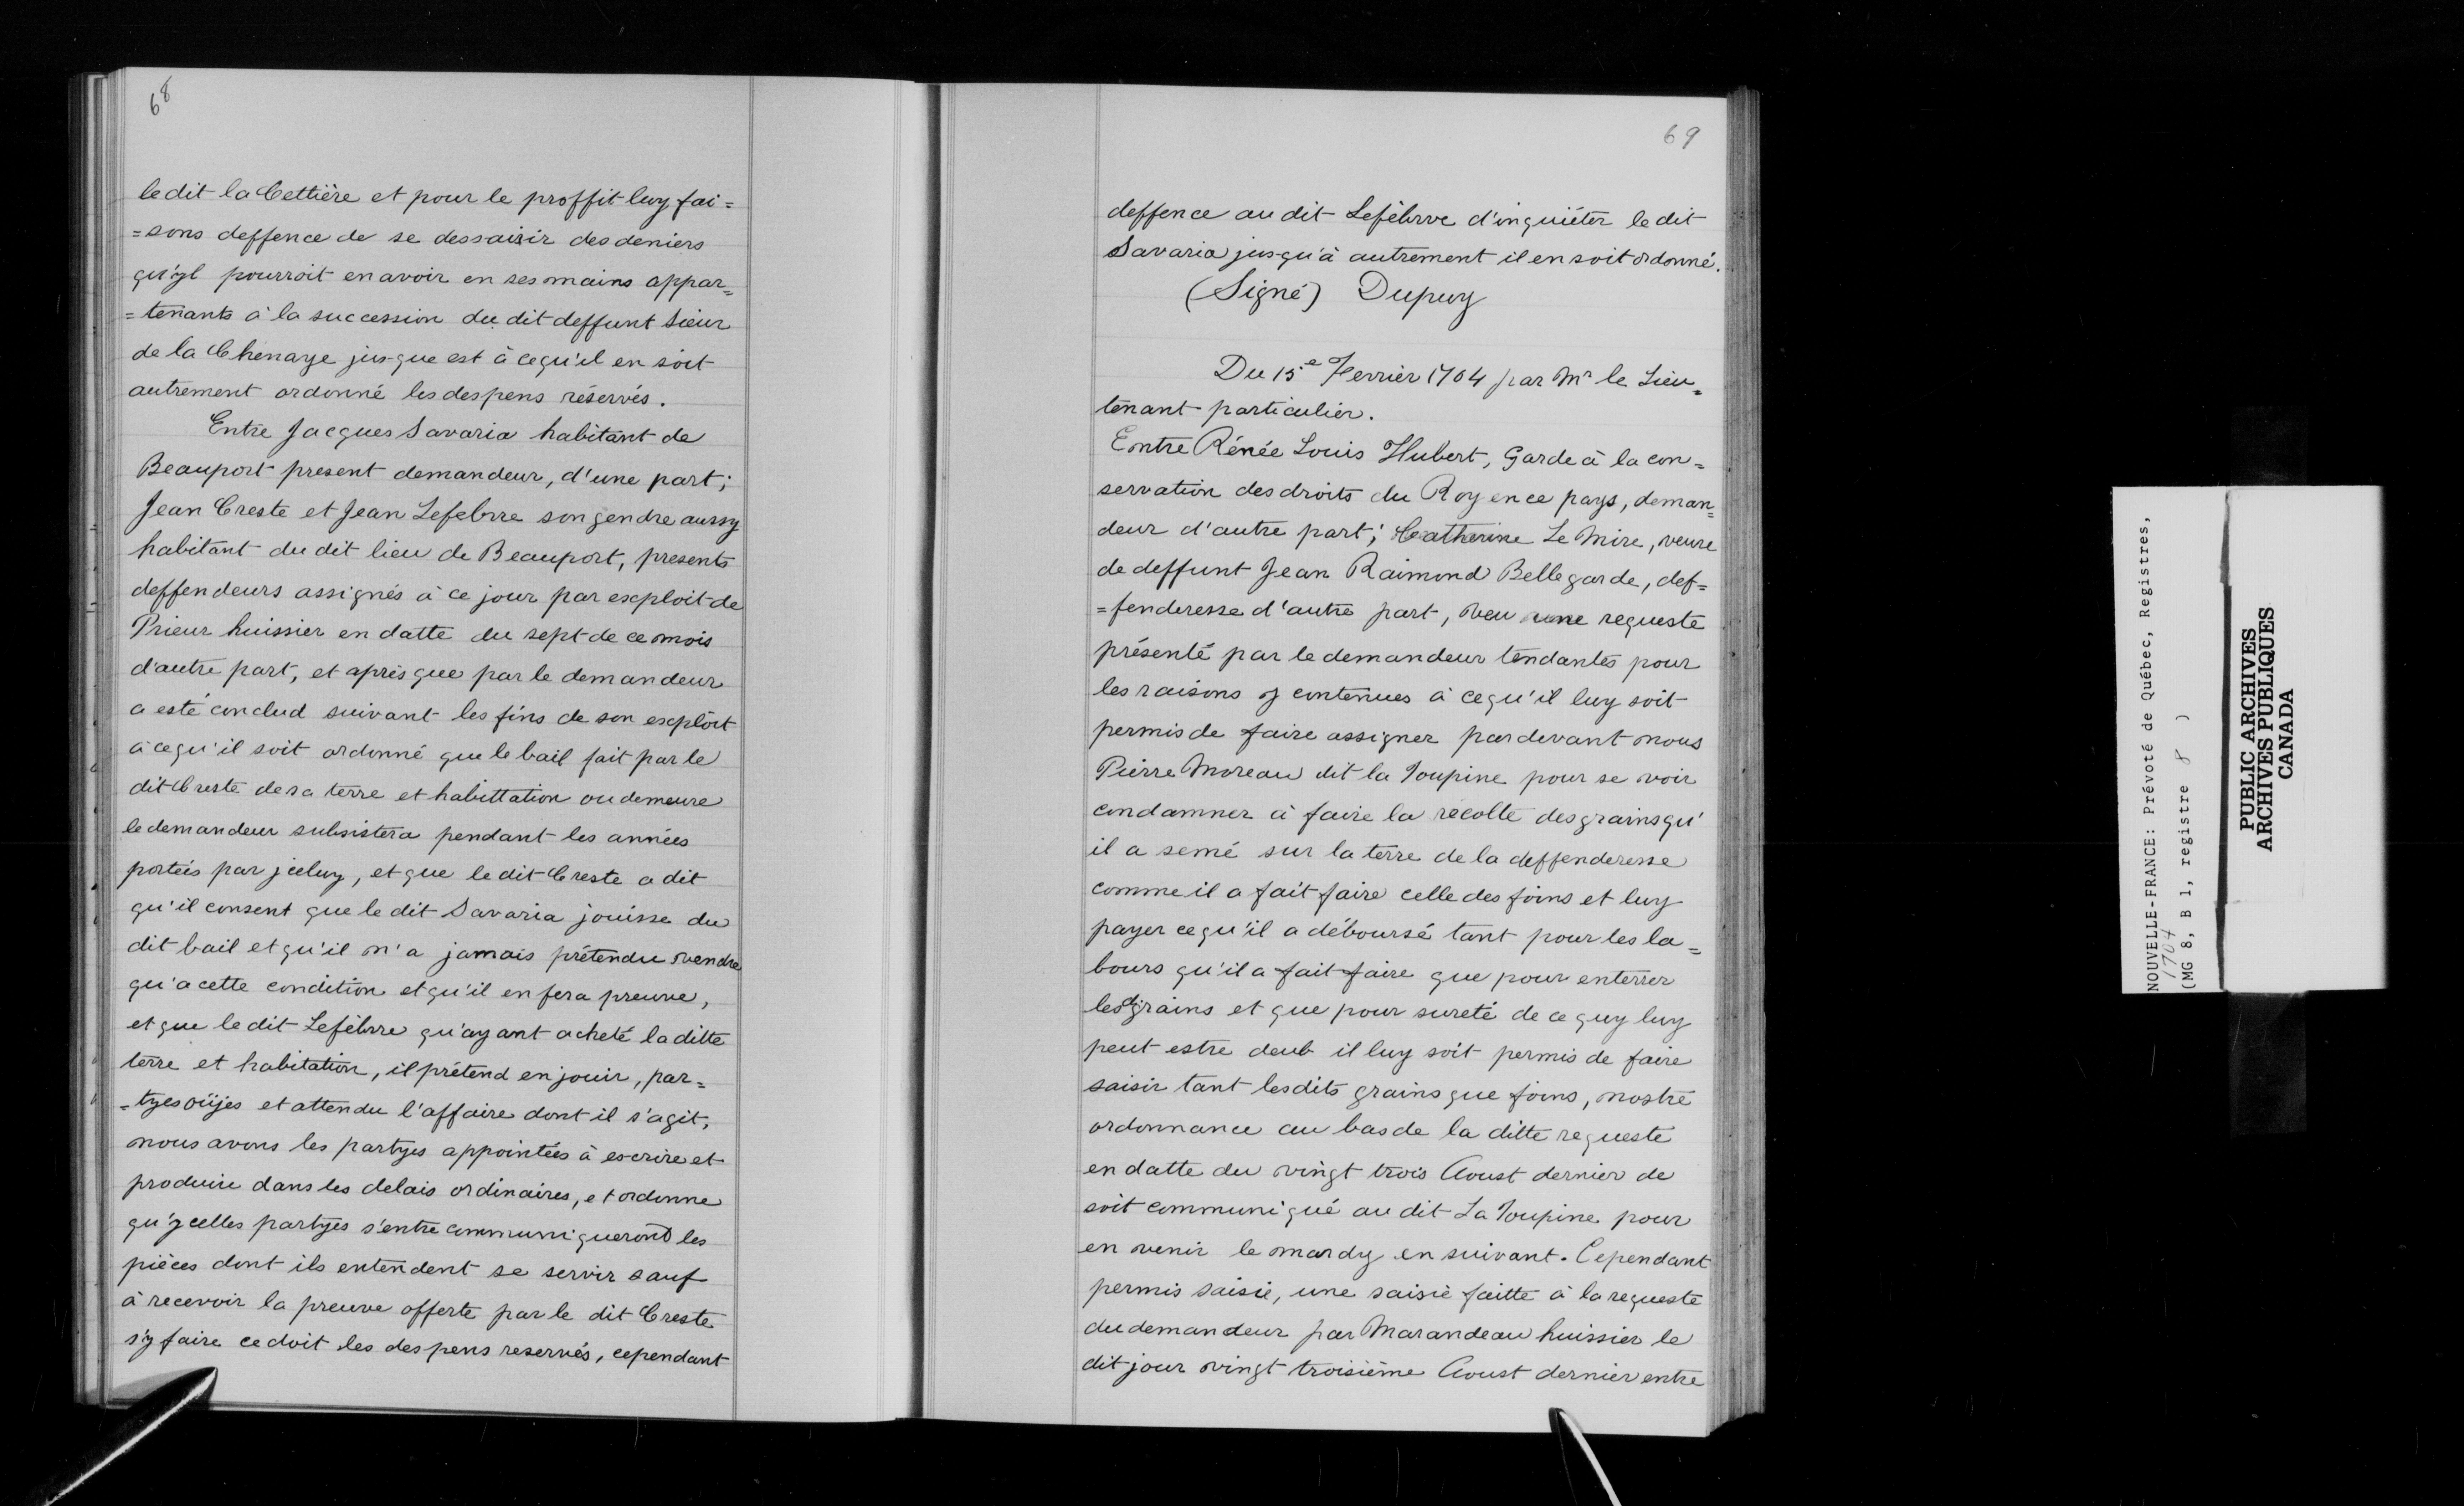 68
le dit la Cettière et pour le proffit luy fai=
=sons deffence de se dessaisir des deniers
qu'yl pourroit en avoir en ses mains appar=
=tenants à la succession du dit deffunt Sieur
de la Chenaye jus-que est à ce qu'il en soit
autrement ordonné les despens réservés.
Entre Jacques Savaria habitant de
Beauport present demandeur, d'une part;
Jean Creste et Jean Lefebvre son gendre aussy
habitant du dit lieu de Beauport, presents
deffendeurs assignés à ce jour par exploit de
Prieur huissier en datte du sept de ce mois
d'autre part, et après que par le demandeur
a esté conclud suivant les fins de son exploit
à ce qu'il soit ordonné que le bail fait par le
dit Creste de sa terre et habittation ou demeure
le demandeur subsistera pendant les années
portées par jceluy, et que le dit Creste a dit
qu'il consent que le dit Savaria jouisse du
dit bail et qu'il n'a jamais prétendu vendre
qu'a cette condition et qu'il en fera preuve,
et que le dit Lefèbvre qu'ayant acheté la ditte
terre et habitation, il prétend en jouir, par=
=tyes oüjes et attendu l'affaire dont il s'agit,
nous avons les partyes appointées à escrire et
produire dans les delais ordinaires, et ordonne
qu'ycelles partyes s'entre communiqueront les
pièces dont ils entendent se servir sauf
à recevoir la preuve offerte par le dit Creste
s'y faire ce doit les despens reservés, cependant
69
deffence au dit Lefèbvre d'inquiéter le dit
Savaria jus-qu'à autrement il en soit ordonné.
(Signé) Dupuy
Du 15e Fevrier 1704 par Mr le Lieu=
tenant particulier.
Entre Rénée Louis Hubert, Garde à la con=
servation des droits du Roy en ce pays, deman=
deur d'autre part; Catherine Le Mire, veuve
de deffunt Jean Raimond Bellegarde, def=
=fenderesse d'autre part, veu une requeste
présenté par le demandeur tendantes pour
les raisons y contenues à ce qu'il luy soit
permis de faire assigner pardevant nous
Pierre Moreau dit la Toupine pour se voir
condamner à faire la récolte des grains qu'
il a semé sur la terre de la deffenderesse
comme il a fait faire celle des foins et luy
payer ce qu'il a déboursé tant pour les la=
bours qu'il a fait faire que pour enterrer
les grains et que pour sureté de ce quy luy
peut estre deub il luy soit permis de faire
saisir tant lesdits grains que foins, nostre
ordonnance au bas de la ditte requeste
en datte du vingt trois Aoust dernier de
soit communiqué au dit La Toupine pour
en venir le mardy en suivant. Cependant
permis saisie, une saisie faitte à la requeste
du demandeur par Marandeau huissier le
dit jour vingt troisième Aoust dernier entre
NOUVELLE-FRANCE: Prévoté de Québec, Registres,
1704
(MG 8, B 1, registre 8 )
PUBLIC ARCHIVES
ARCHIVES PUBLIQUES
CANADA